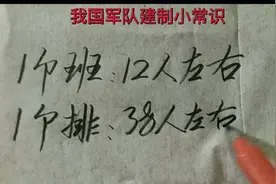 我国军队建制小常识
1个班:12人左右
1个排:38人左右